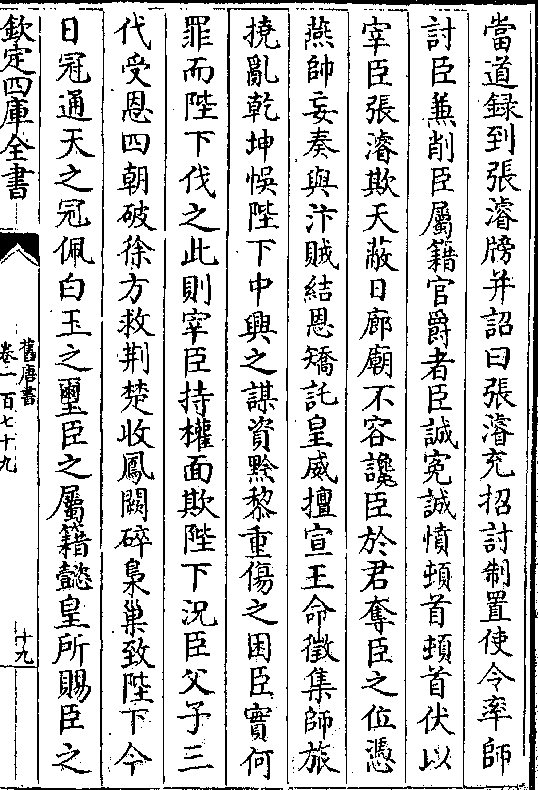 當道録到張濬牓并詔曰張濬充招討制置使令率師
討臣兼削臣屬籍官爵者臣誠冤誠憤頓首頓首伏以
宰臣張濬欺天蔽日廊廟不容讒臣於君奪臣之位憑
燕帥妄奏與汴賊結恩矯託皇威擅宣王命徵集師旅
撓亂乾坤悞陛下中興之謀資黔黎重傷之困臣實何
罪而陛下伐之此則宰臣持權面欺陛下況臣父子三
代受恩四朝破徐方救荆楚收鳳闕碎梟巢致陛下今
日冠通天之冠佩白玉之璽臣之屬籍懿皇所賜臣之
欽定四庫全書
舊唐書
卷一百七十九
十九